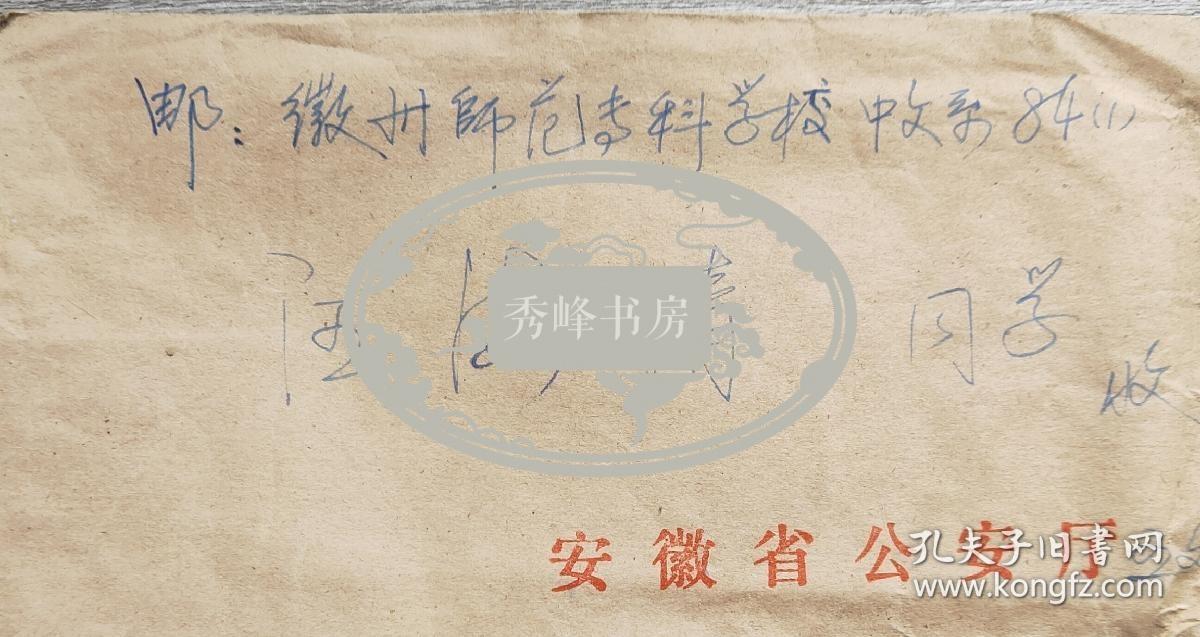 邮：徽州師范专科学校中文系84(1)
汪 同学
收
秀峰书房
安徽省公安厅
孔夫子旧书网
www.kongfz.com